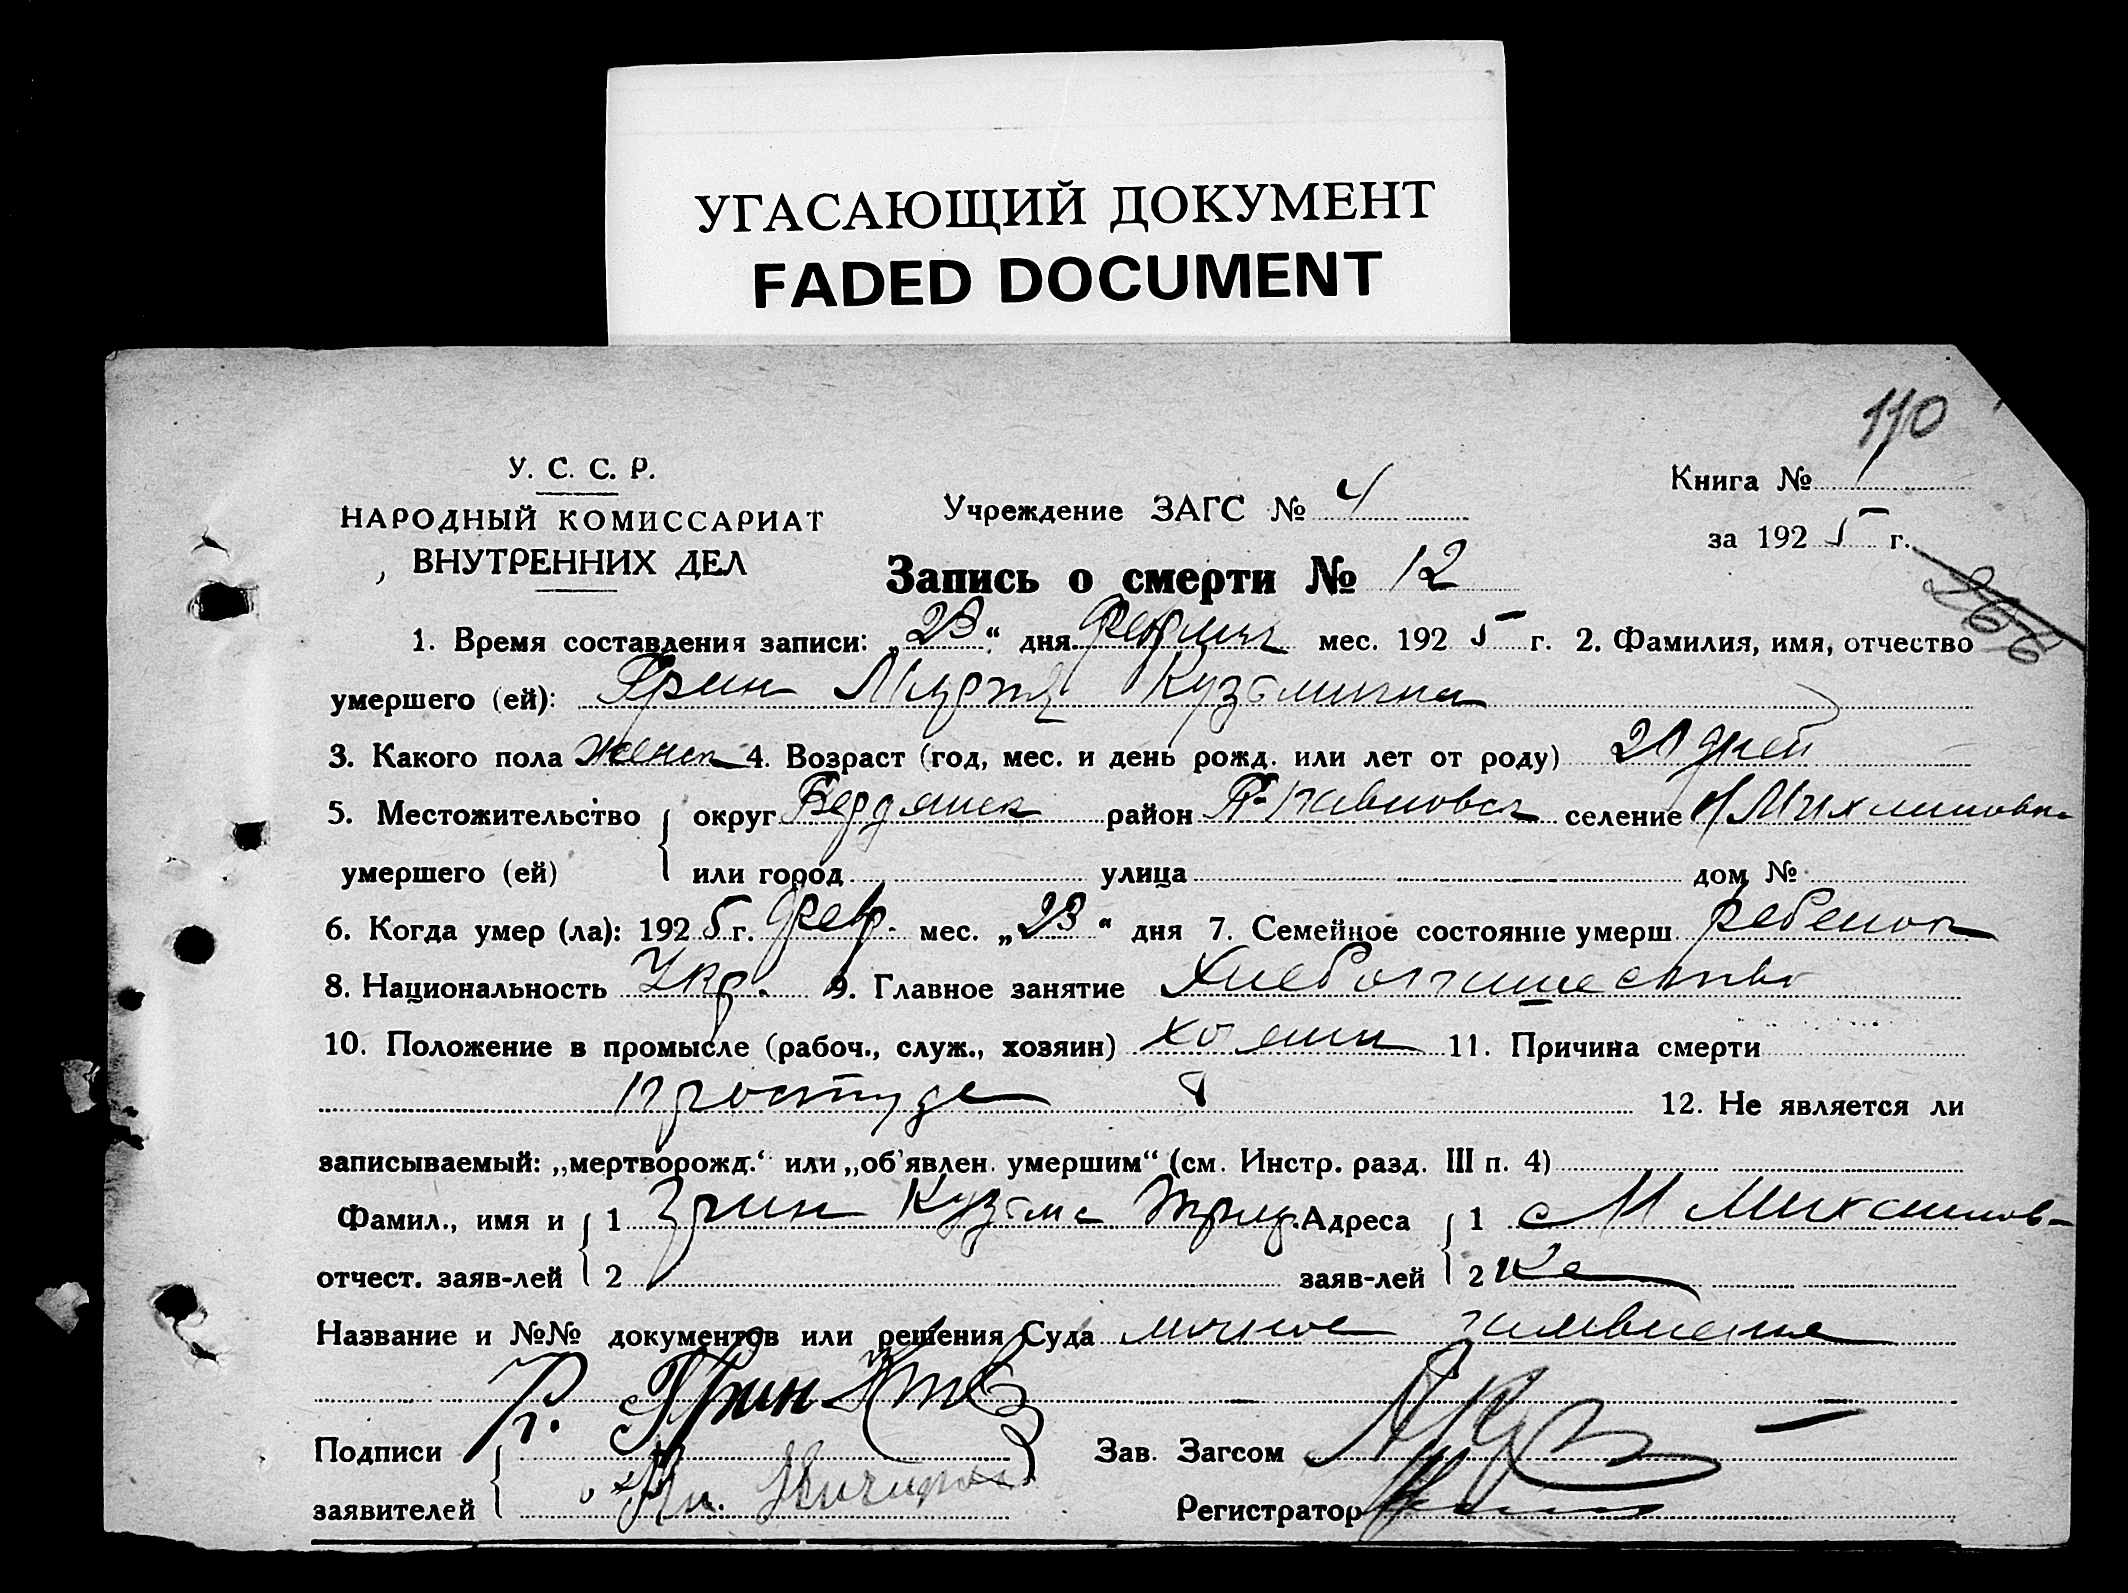 УГАСАЮЩИЙ ДОКУМЕНТ
FADED DOCUMENT
110
У. С. С. Р.
НАРОДНЫЙ КОМИССАРИАТ
ВНУТРЕННИХ ДЕЛ
Учреждение ЗАГС № 4
Книга № 1
за 1925 г.
266
Запись о смерти № 12
1. Время составления записи: „23“ дня февраля мес. 1925 г. 2. Фамилия, имя, отчество
умершего (ей): Грин Мария Кузьминична
3. Какого пола женск 4. Возраст (год, мес. и день рожд. или лет от роду) 20 дней
5. Местожительство умершего (ей) округ Бердянск район селение Н Михайловка
или город улица дом №
6. Когда умер (ла): 1925 г. февр. мес. „23“ дня 7. Семейное состояние умерш. ребенок
8. Национальность Укр. 9. Главное занятие Хлебопашество
10. Положение в промысле (рабоч., служ., хозяин) хозяин 11. Причина смерти
простуда
12. Не является ли
записываемый: „мертворожд.“ или „об'явлен. умершим“ (см. Инстр. разд. III п. 4)
Фамил., имя и отчест. заяв-лей 1 Грин Кузьма 2
Адреса заяв-лей 1 с Н Михайлов- 2 ка
Название и №№ документов или решения Суда личное заявление
Г. Грин
Подписи заявителей
Зав. Загсом
Регистратор